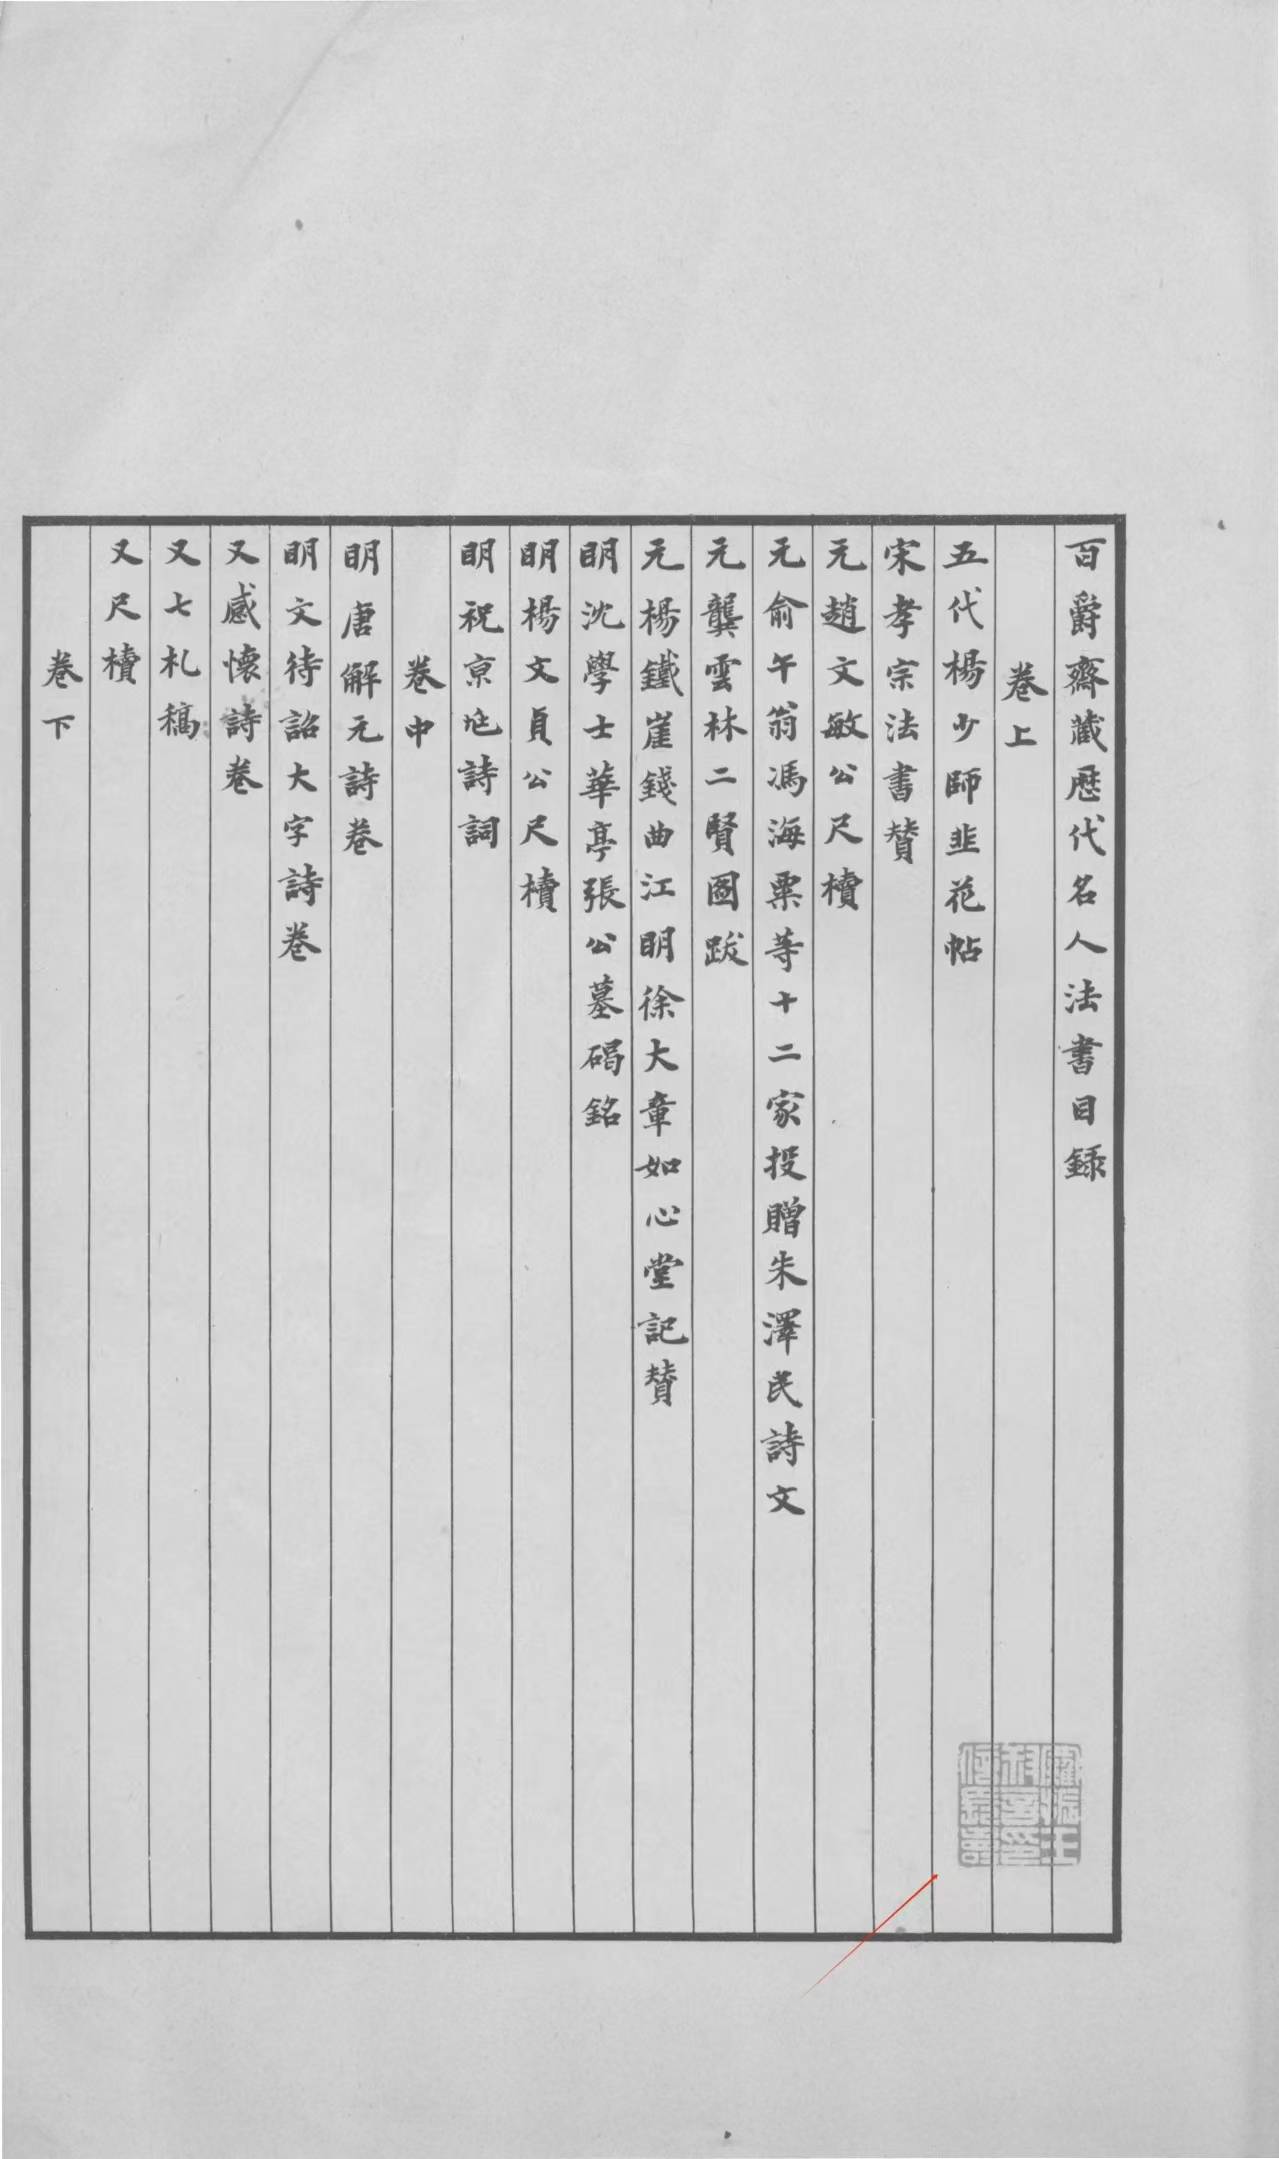 百爵齋藏歷代名人法書目錄
卷上
五代楊少師韭花帖
宋孝宗法書贊
元趙文敏公尺牘
元俞午翁馮海粟等十二家投贈朱澤民詩文
元龔雲林二賢圖跋
元楊鐵崖錢曲江明徐大章如心堂記贊
明沈學士華亭張公墓碣銘
明楊文貞公尺牘
明祝京兆詩詞
卷中
明唐解元詩卷
明文待詔大字詩卷
又感懷詩卷
又七札稿
又尺牘
卷下